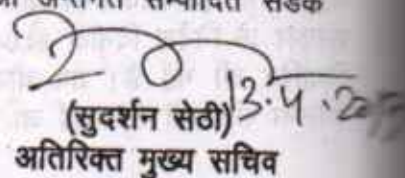 अन्तर्गत सम्पादित सड़क
(सुदर्शन सेठी) 13.4.
अतिरिक्त मुख्य सचिव